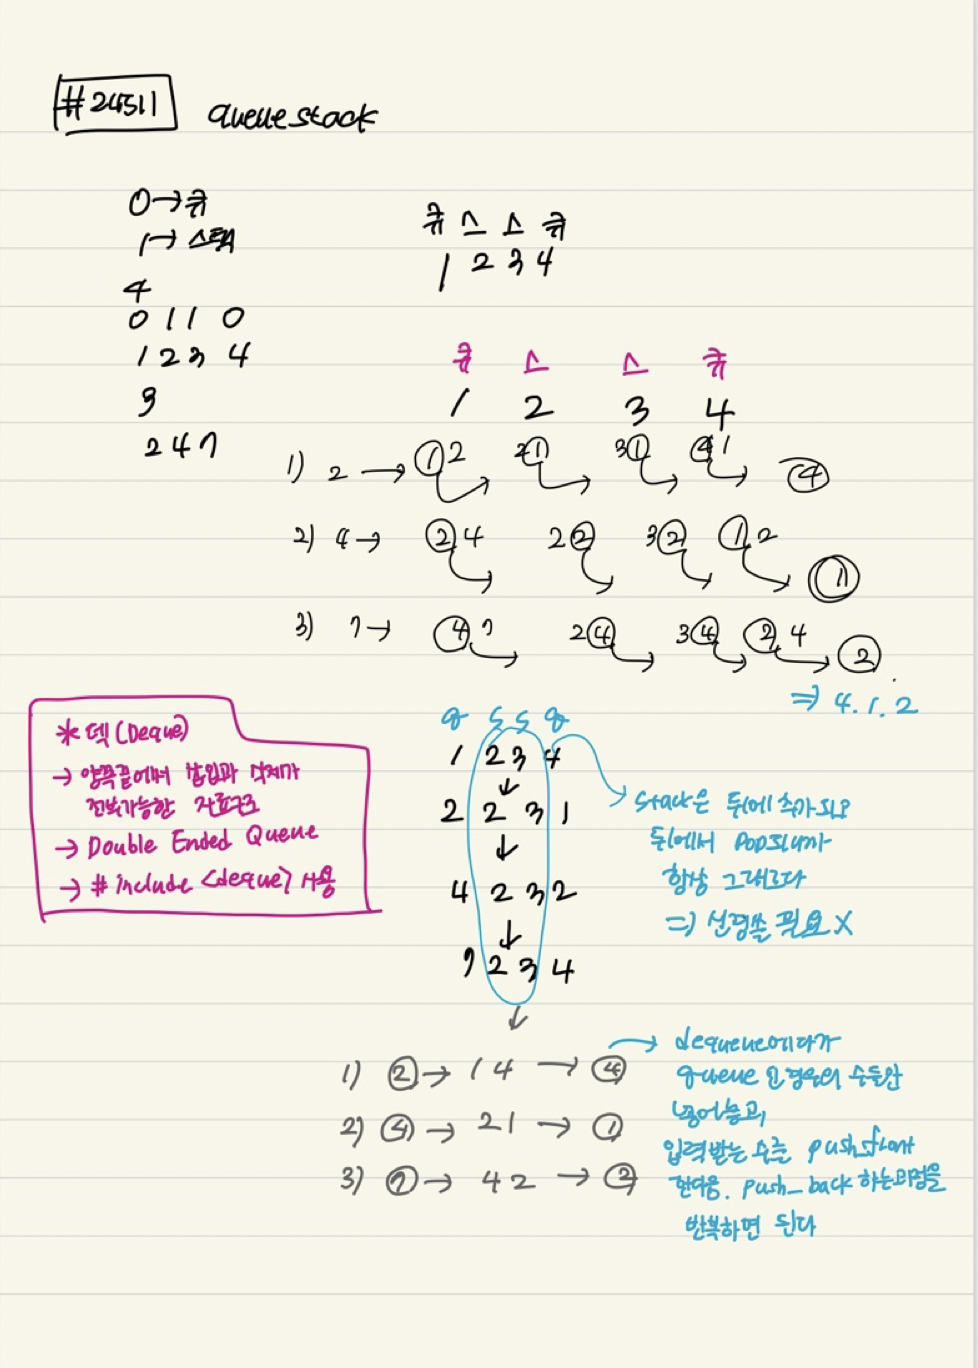 #24511 queuestack
0→큐
1→스택
4
0 1 1 0
1 2 3 4
3
2 4 7
큐 스 스 큐
1 2 3 4
큐 스 스 큐
1 2 3 4
1) 2 → ①2 2① 3① ④1 ④
2) 4→ ②4 2② 3② ①2 ①
3) 7→ ④7 2④ 3④ ②4 ②
⇒ 4.1.2
* 덱(Deque)
→ 양쪽끝에서 삽입과 삭제가
전부가능한 자료구조
→ Double Ended Queue
→ #include <deque> 사용
q s s q
1 2 3 4
↓
2 2 3 1
↓
4 2 3 2
↓
7 2 3 4
↓
→ stack은 뒤에 추가되고
뒤에서 pop되니까
항상 그대로다
=> 신경쓸 필요 X
1) ②→ 1 4 → ④
2) ④→ 2 1 → ①
3) ⑦→ 4 2 → ②
→ dequeue에다가
queue 인 경우의 수들만
넣어놓고,
입력받는 수는 push_front
한다음. push_back 하는과정을
반복하면 된다